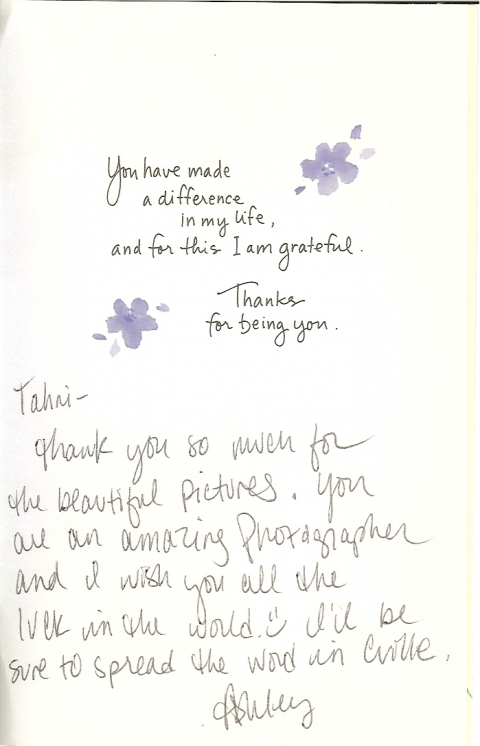 You have made
a difference
in my life,
and for this I am grateful.
Thanks
for being you.
Tahni-
Thank you so much for
the beautiful pictures. You
are an amazing photographer
and I wish you all the
luck in the world. I'll be
sure to spread the word in Cville.
Ashley